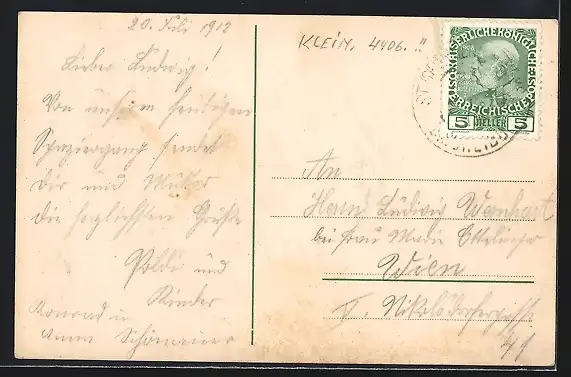 20. Juli 1912
Lieber Ludwig!
Von unserem heutigen
Spaziergang sendet
Dir und Mutter
die herzlichsten Grüße
Poldi und
Kinder
Konrad u
Anna
KLEIN, 4406.!!
KAISERLICHE KÖNIGLICHE
ÖSTERREICHISCHE POST
5 HELLER 5
An
Herrn Ludwig
bei Frau Marie
Wien
Nikolsdorfergasse